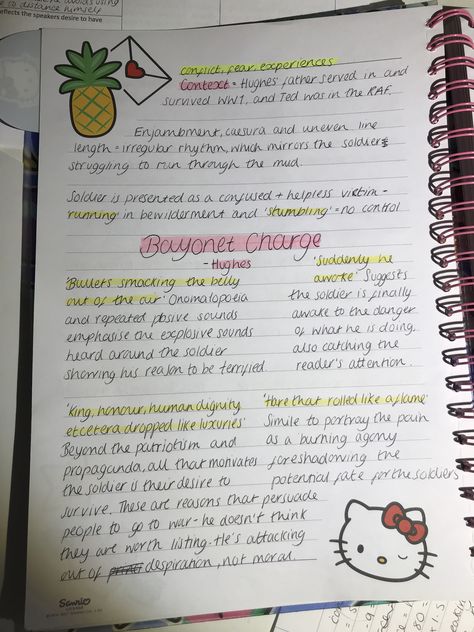 to distance himself
reflects the speakers desire to have
conflict, fear, experiences
Context = Hughes' father served in and
survived WW1, and Ted was in the RAF.
Enjambment, caesura and uneven line
length = irregular rhythm, which mirrors the soldiers
struggling to run through the mud.
Soldier is presented as a confused + helpless victim -
'running' in bewilderment and 'stumbling' = no control
Bayonet Charge
- Hughes
'Bullets smacking the belly
out of the air' Onomatopoeia
and repeated plosive sounds
emphasise the explosive sounds
heard around the soldier
showing his reason to be terrified.
'Suddenly he
awoke' Suggests
the soldier is finally
awake to the danger
of what he is doing.
also catching the
reader's attention.
'King, honour, human dignity
etcetera dropped like luxuries'
Beyond the patriotism and
propaganda, all that motivates
the soldier is their desire to
survive. These are reasons that persuade
people to go to war - he doesn't think
they are worth listing. He's attacking
out of despiration, not moral.
'Hare that rolled like a flame'
Simile to portray the pain
as a burning agony
foreshadowing the
potential fate for the soldiers
Sanrio